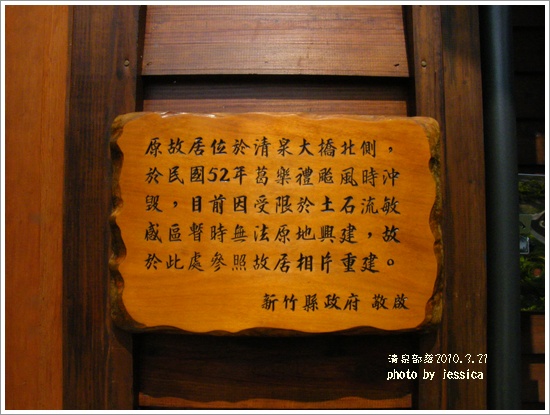 原故居位於清泉大橋北側，
於民國52年葛樂禮颱風時沖
毀，目前因受限於土石流敏
感區暫時無法原地興建，故
於此處參照故居相片重建。
新竹縣政府 敬啟
清泉部落2010.3.21
photo by jessica